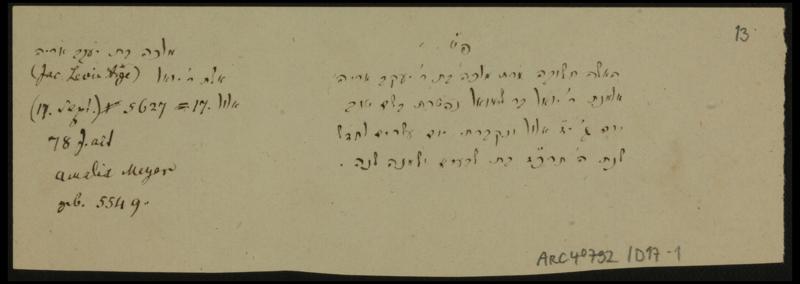 13
פ"נ
האשה חשובה מרת מלכה בת ר' יעקב אריה
אלמנת ר' יואל בר שמואל נפטרת בשם טוב
יום ג' י"ז אלול ונקברת יום עשרים לחדש
שנת ה' תרכ"ז בת שבעים ושמנה שנה .
מלכה בת יעקב אריה
(Jac. Levin Arje) אשת ר' יואל
(17. Sept.) 5627 = 17. אלול
78 J. alt
Amalia Meyer
geb. 5549.
ARC 4° 792 / D17 - 1